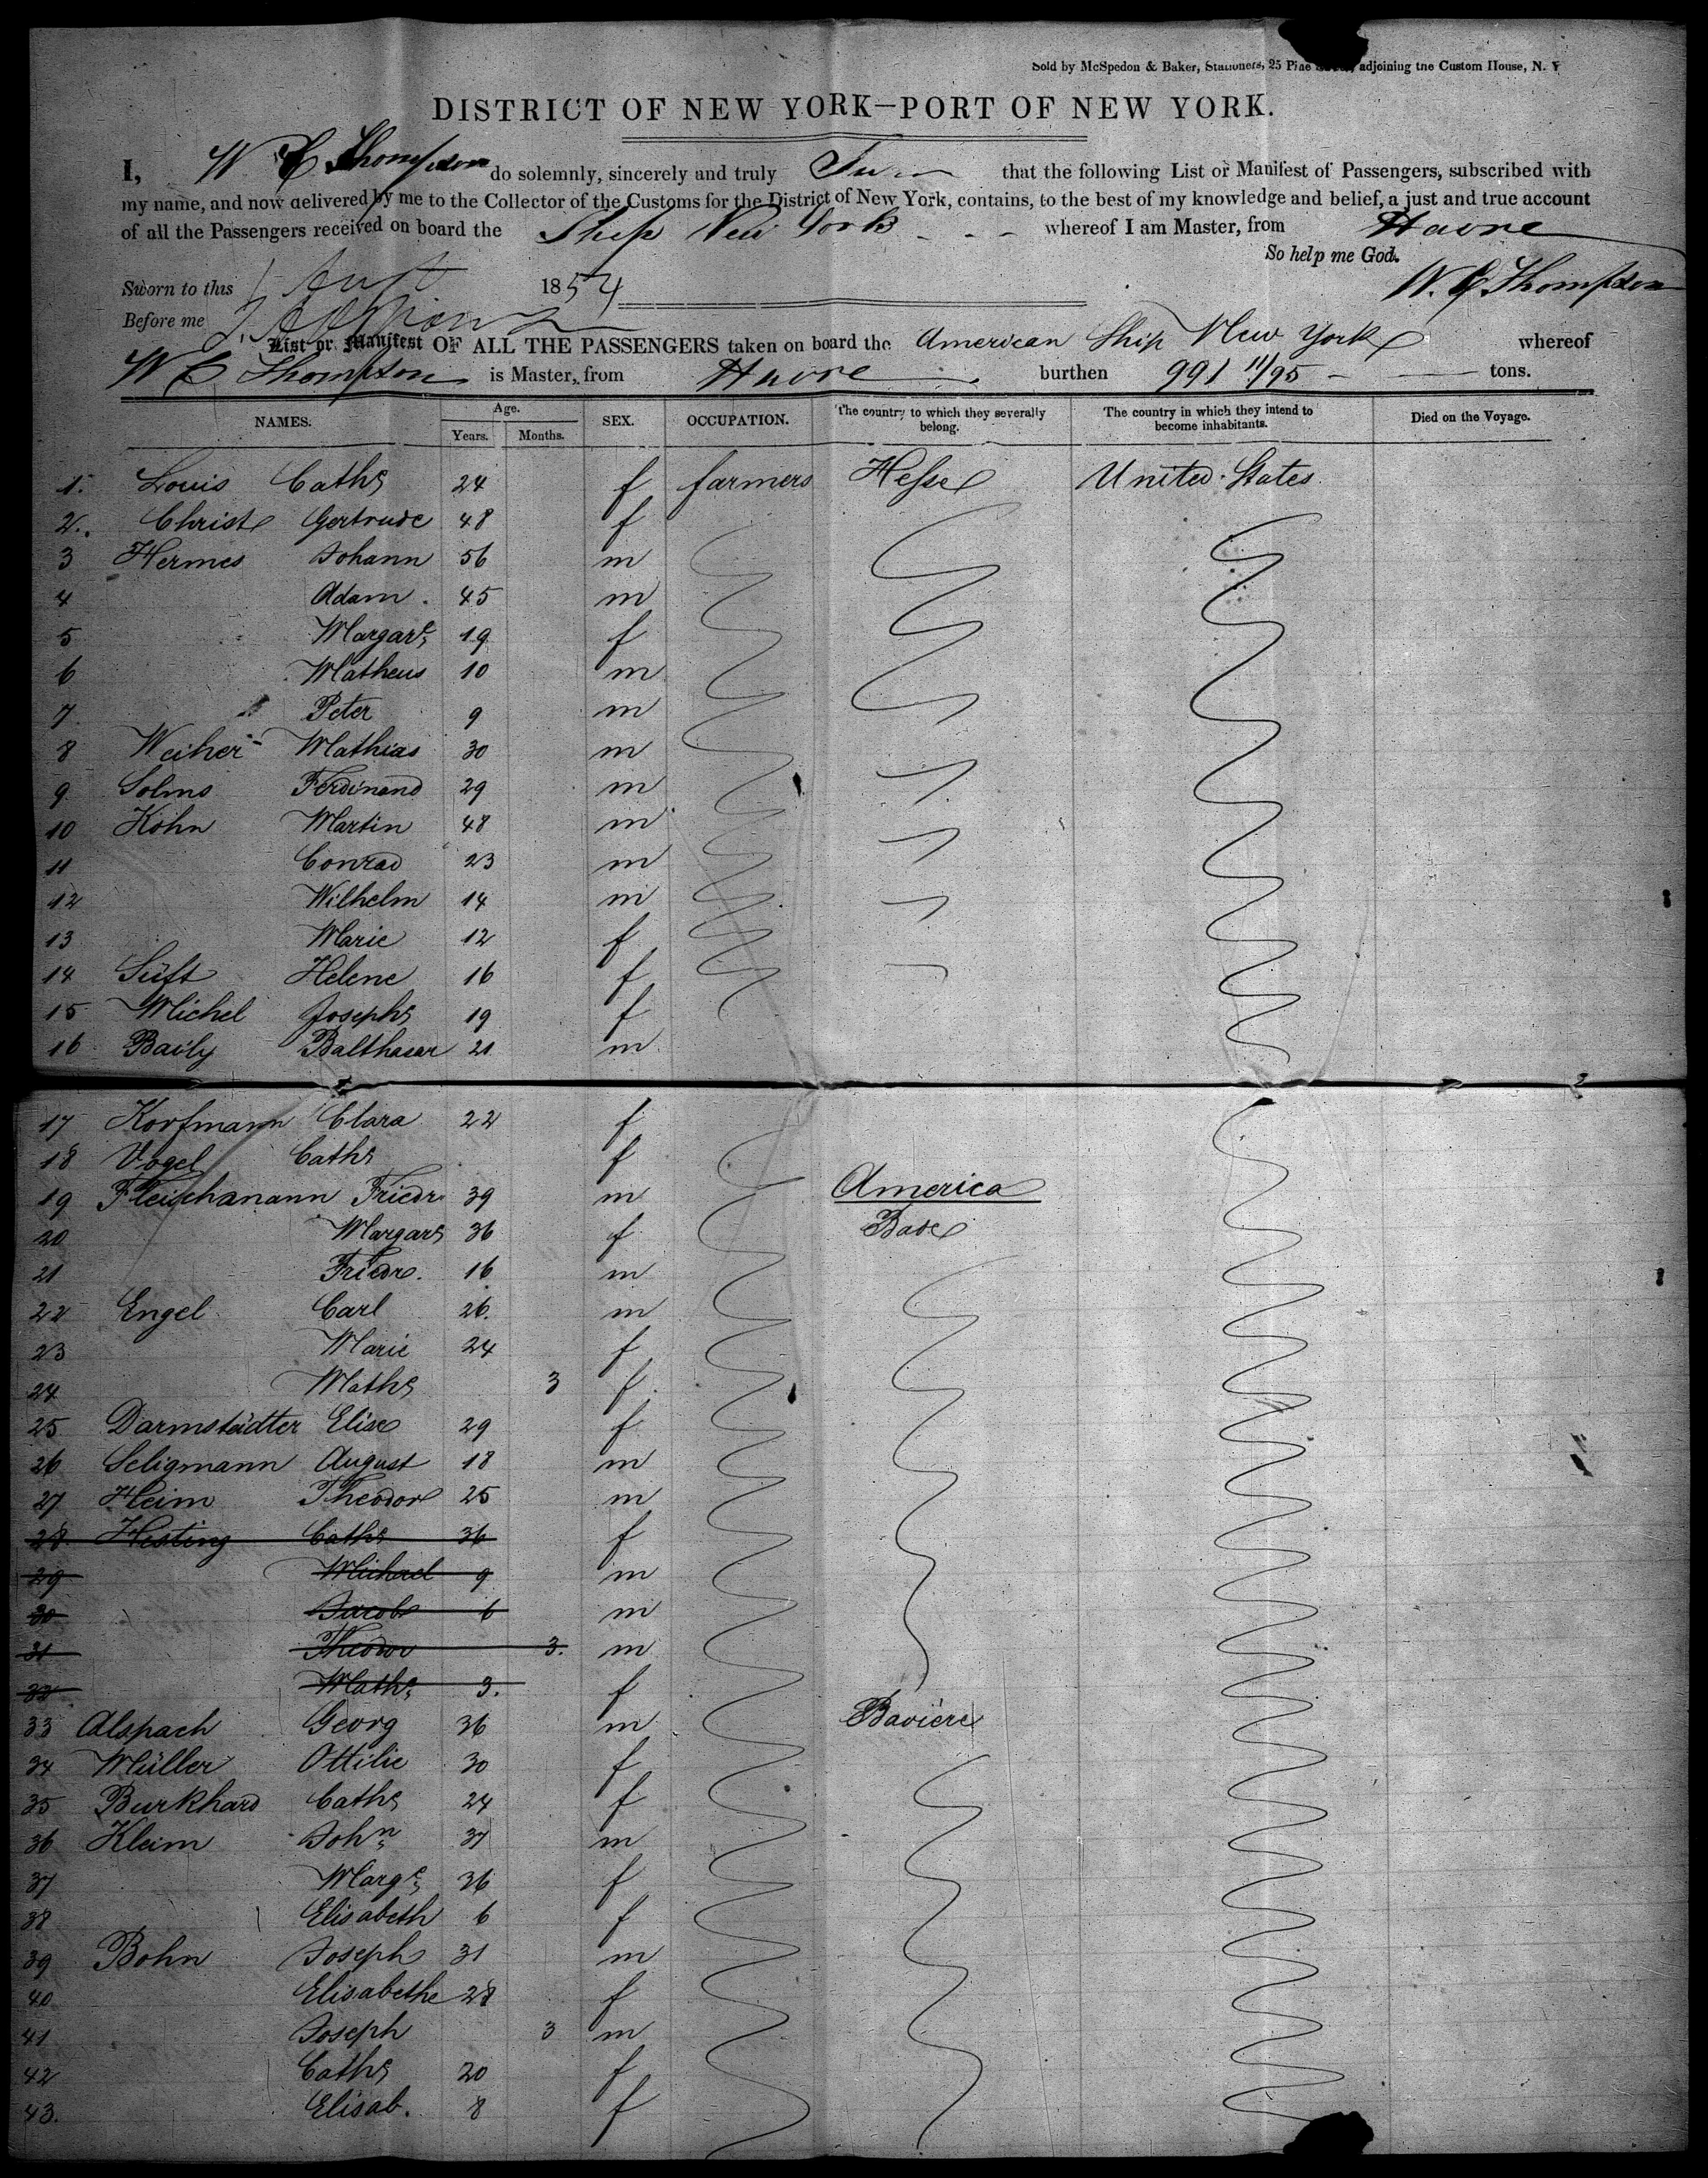 Sold by McSpedon & Baker, Stationers, 25 Pine adjoining the Custom House, N. Y
DISTRICT OF NEW YORK—PORT OF NEW YORK.
I, W C Thompson do solemnly, sincerely and truly that the following List or Manifest of Passengers, subscribed with
my name, and now delivered by me to the Collector of the Customs for the District of New York, contains, to the best of my knowledge and belief, a just and true account
of all the Passengers received on board the Ship New York - - - whereof I am Master, from Havre
So help me God.
Sworn to this 1854 W. C Thompson
Before me
List or Manifest OF ALL THE PASSENGERS taken on board the American Ship New York whereof
W C Thompson is Master, from Havre burthen 991 11/95 tons.
NAMES. Age. SEX. OCCUPATION. The country to which they severally belong. The country in which they intend to become inhabitants. Died on the Voyage.
Years. Months.
1. Louis Cath: 24 f farmers Hesse United States
2. Christ Gertrude 48 f
3 Hermes Johann 56 m
4 Adam. 45 m
5 Margare: 19 f
6 Matheus 10 m
7 Peter 9 m
8 Weiher Mathias 30 m
9 Solms Ferdinand 29 m
10 Kohn Martin 48 m
11 Conrad 23 m
12 Wilhelm 14 m
13 Marie 12 f
14 Süft Helene 16 f
15 Michel Josephe 19 f
16 Baily Balthasar 21 m
17 Korfmann Clara 22 f
18 Vogel Cath: f
19 Fleischanann Friedr 39 m America
20 Margare 36 f Bade
21 Friedr. 16 m
22 Engel Carl 26. m
23 Marie 24 f
24 Mathe 3 f
25 Darmstädter Elise 29 f
26 Seligmann August 18 m
27 Heim Theodor 25 m
28. Hesting Cathe 36 f
29 Michael 9 m
30 Jacob 6 m
31 Theodor 3. m
32 Mathe 3. f
33 Alspach Georg 36 m Baviere
34 Müller Ottilie 30 f
35 Burkhard Cathe 24 f
36 Kleim John 37 m
37 Marge 36 f
38 Elisabeth 6 f
39 Bohn Joseph 31 m
40 Elisabethe 28 f
41 Joseph 3 m
42 Cathe 20 f
43. Elisab. 8 f